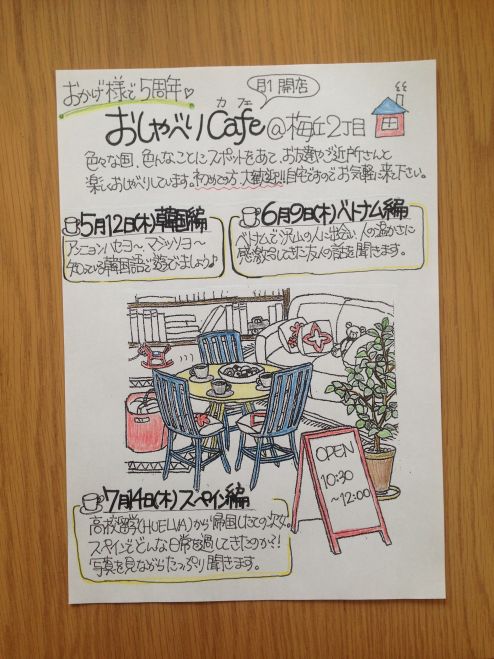 おかげ様で5周年♡
月1開店
カフェ
おしゃべりCafe@梅丘2丁目
色々な国、色んなことにスポットをあて、お友達やご近所さんと
楽しくおしゃべりしています。初めての方、大歓迎!!自宅ですのでお気軽に来て下さい。
5月12日(木)韓国編
アンニョンハセヨ〜 マシッソヨ〜
知っている韓国語で遊びましょう♪
6月9日(木)ベトナム編
ベトナムで沢山の人に出会い、人の温かさに
感激してきた友人の話を聞きます。
OPEN
10:30
〜12:00
7月14日(木)スペイン編
高校留学(HUELVA)から帰国したての次女。
スペインでどんな日常を過してきたのか?!
写真を見ながらたっぷり聞きます。